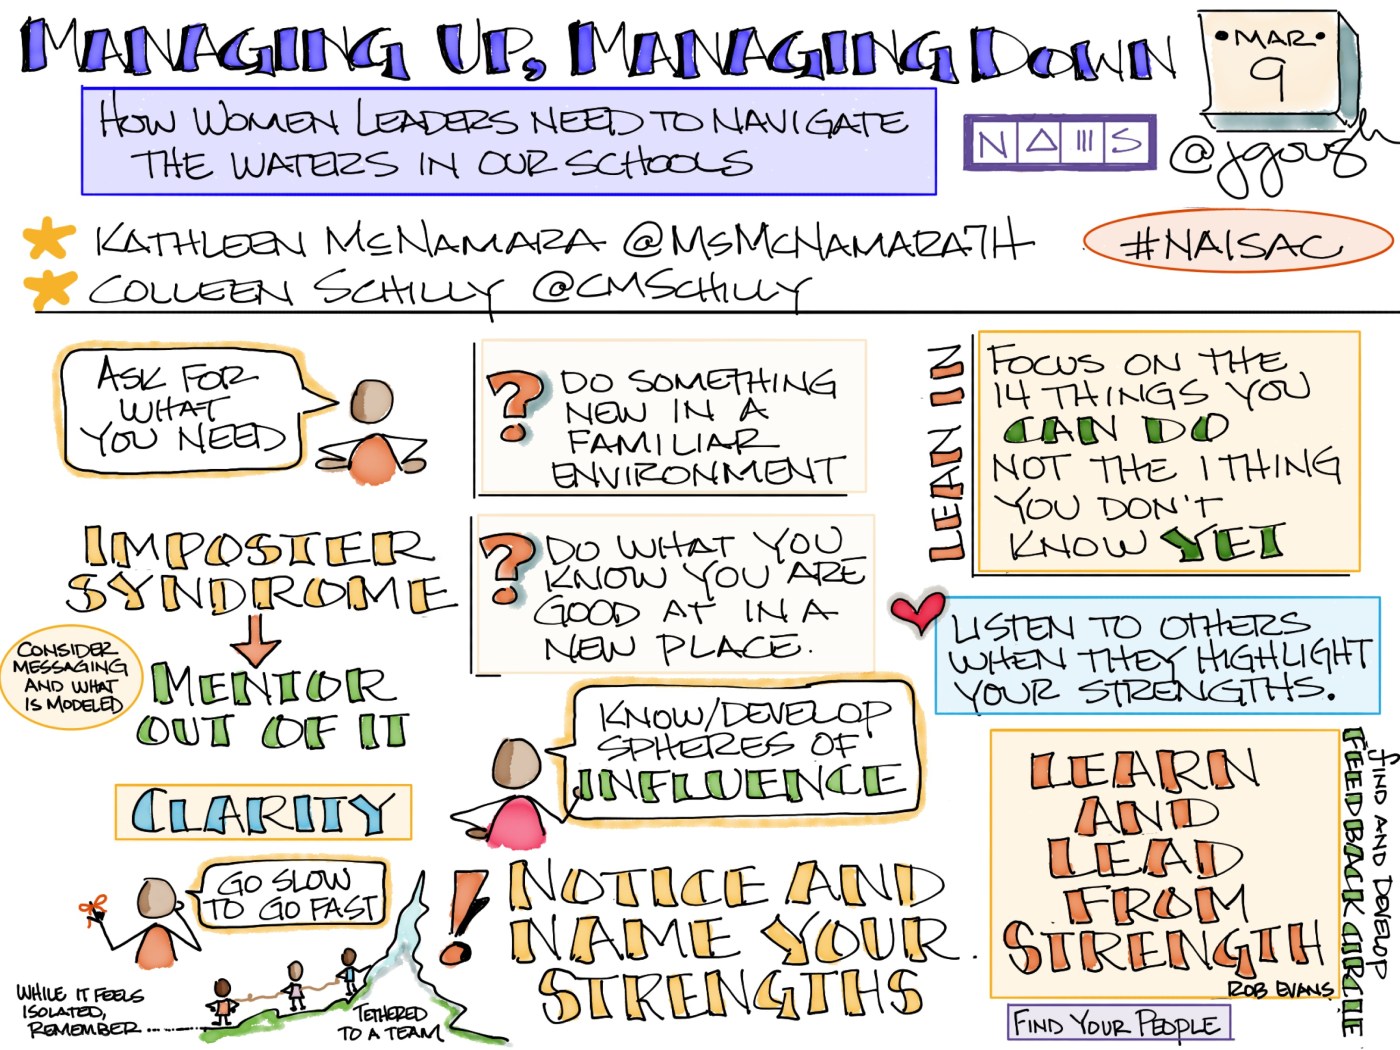 MANAGING UP, MANAGING DOWN
• MAR •
9
HOW WOMEN LEADERS NEED TO NAVIGATE
THE WATERS IN OUR SCHOOLS
NAIS
@jgough
KATHLEEN MCNAMARA @MSMCNAMARA7H
#NAISAC
COLLEEN SCHILLY @CMSCHILLY
ASK FOR
WHAT
YOU NEED
? DO SOMETHING
NEW IN A
FAMILIAR
ENVIRONMENT
LEAN IN
FOCUS ON THE
14 THINGS YOU
CAN DO
NOT THE 1 THING
YOU DON'T
KNOW YET
IMPOSTER
SYNDROME
CONSIDER
MESSAGING
AND WHAT
IS MODELED
MENTOR
OUT OF IT
? DO WHAT YOU
KNOW YOU ARE
GOOD AT IN A
NEW PLACE.
LISTEN TO OTHERS
WHEN THEY HIGHLIGHT
YOUR STRENGTHS.
KNOW/DEVELOP
SPHERES OF
INFLUENCE
CLARITY
GO SLOW
TO GO FAST
WHILE IT FEELS
ISOLATED,
REMEMBER......
TETHERED
TO A TEAM
! NOTICE AND
NAME YOUR
STRENGTHS
LEARN
AND
LEAD
FROM
STRENGTH
ROB EVANS
FIND AND DEVELOP
FEEDBACK CIRCLE
FIND YOUR PEOPLE